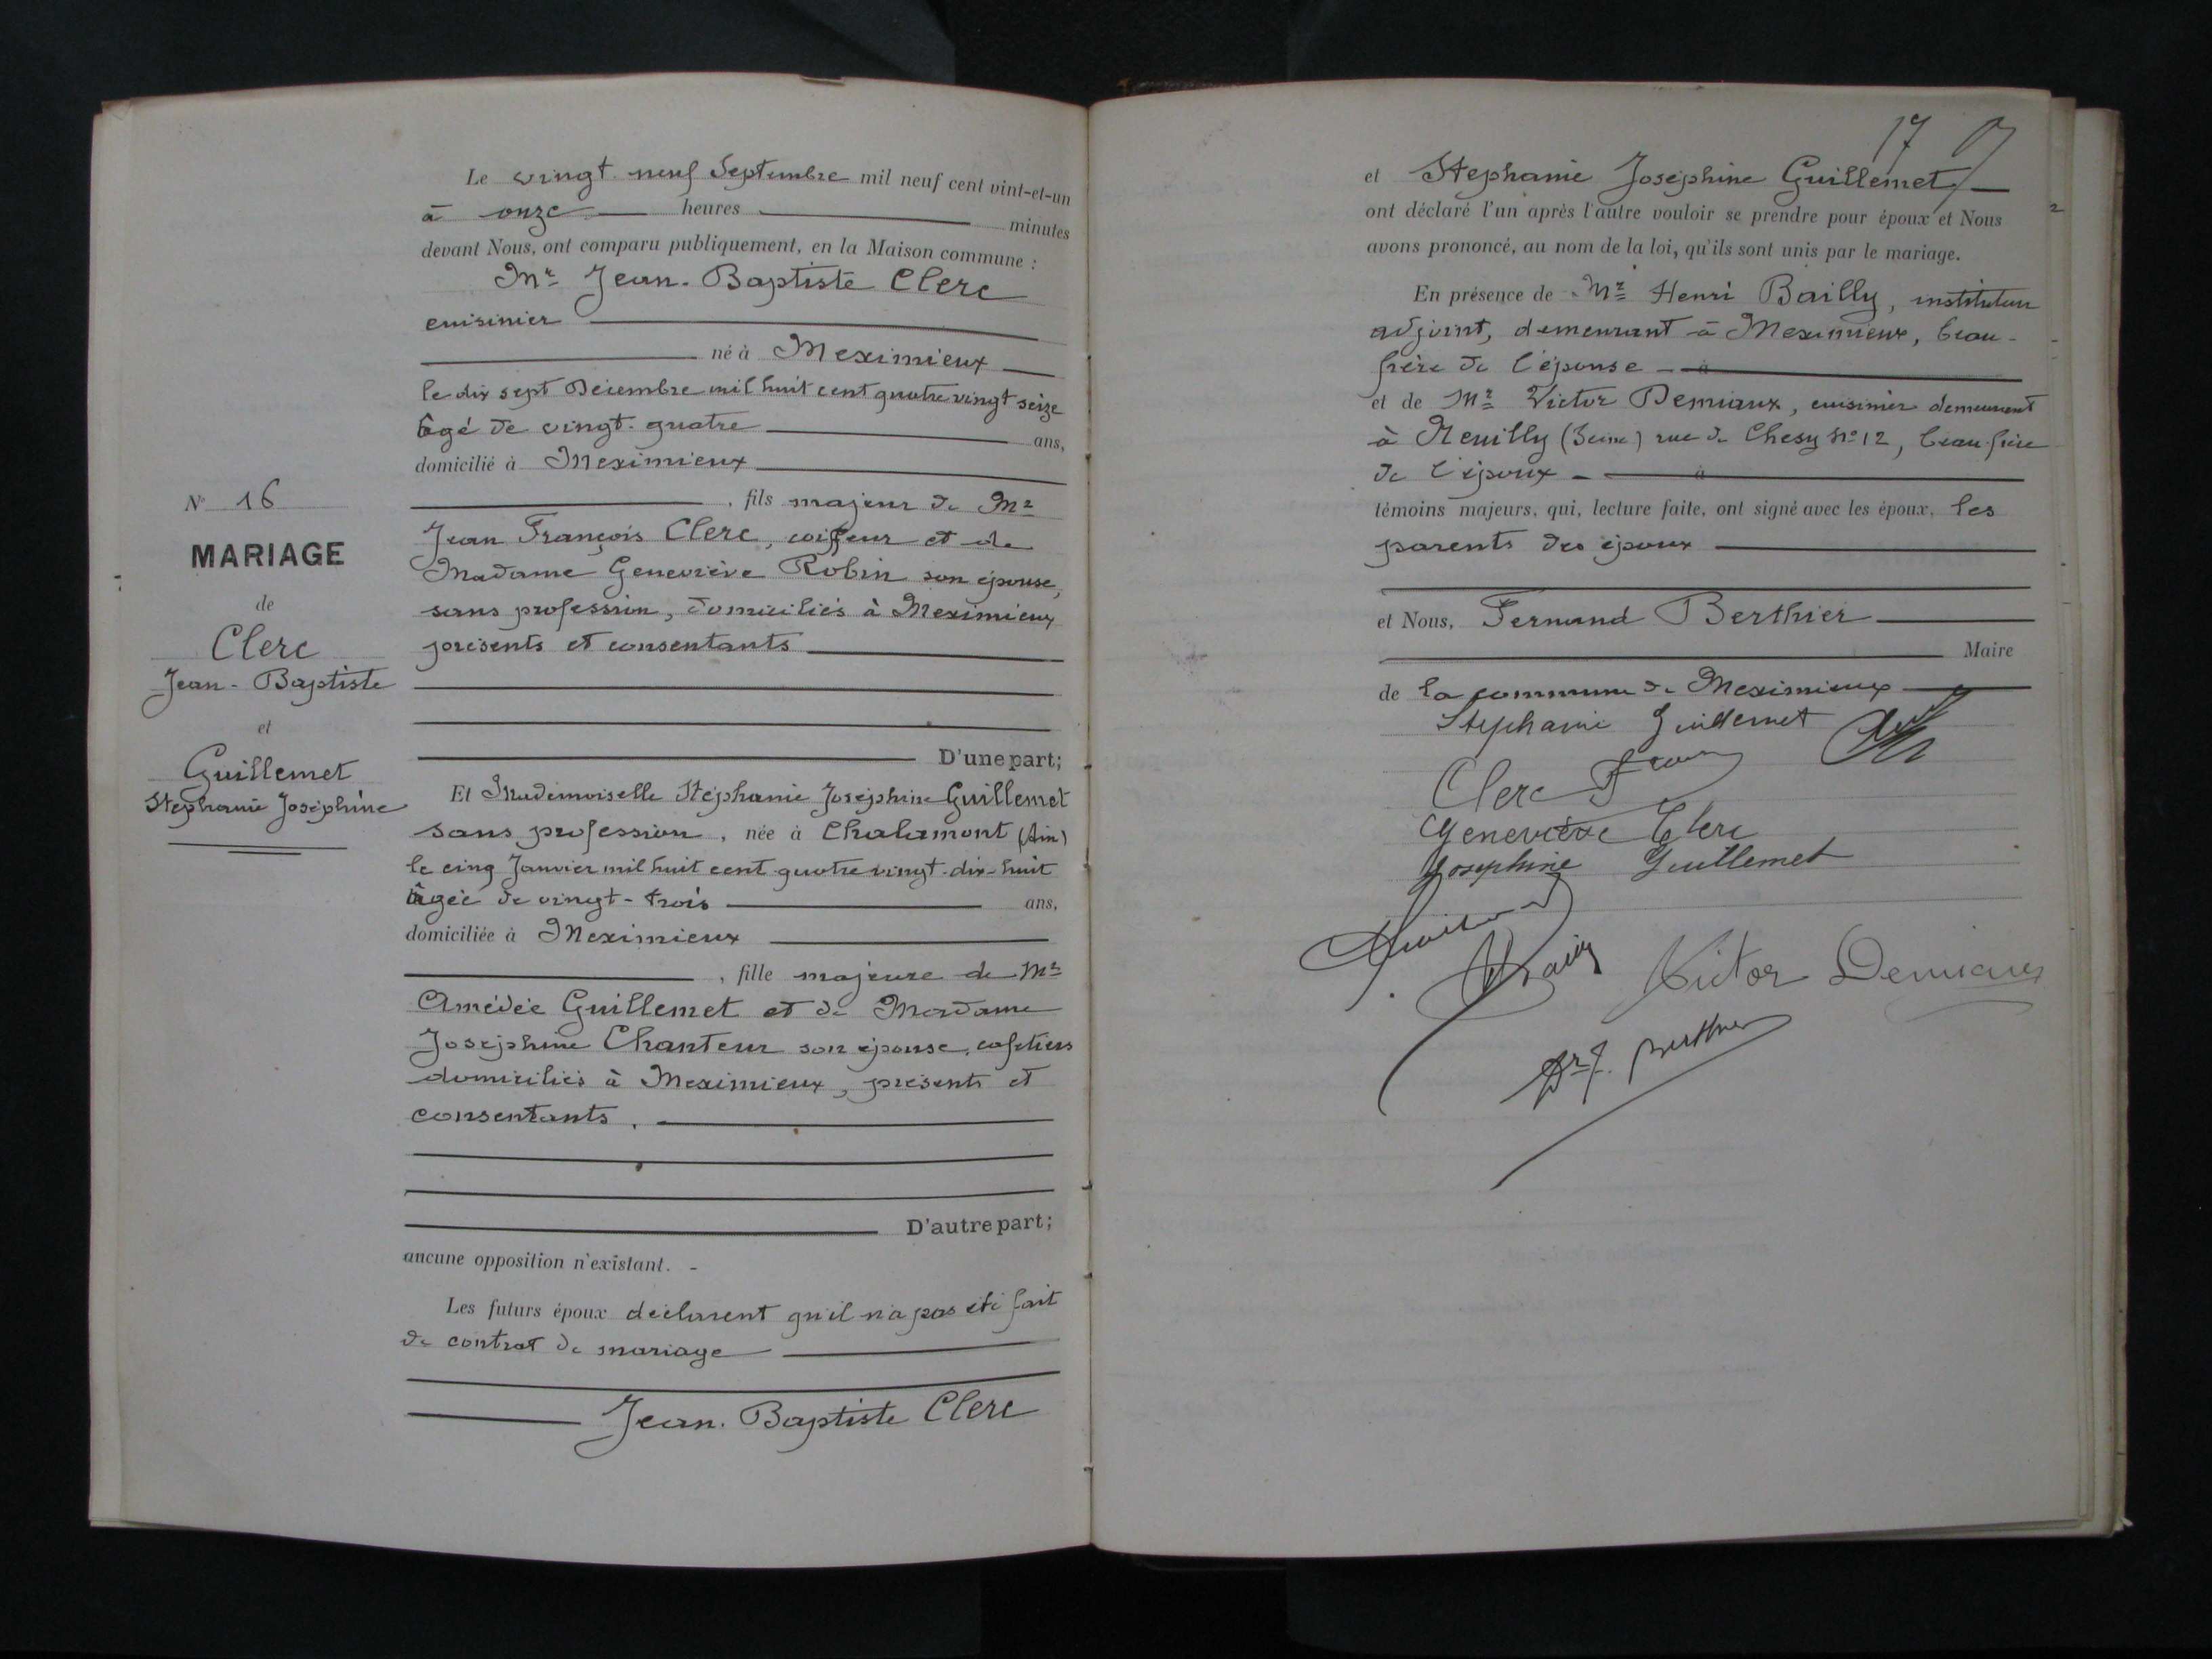 N° 16
MARIAGE
de
Clerc
Jean-Baptiste
et
Guillemet
Stéphanie Joséphine
Le vingt neuf Septembre mil neuf cent vint-et-un
à onze heures minutes
devant Nous, ont comparu publiquement, en la Maison commune :
Mr Jean-Baptiste Clerc
cuisinier
né à Meximieux
le dix sept Décembre mil huit cent quatre vingt seize
âgé de vingt-quatre ans,
domicilié à Meximieux
, fils majeur de Mr
Jean François Clerc, coiffeur et de
Madame Geneviève Robin son épouse,
sans profession, domiciliés à Meximieux
présents et consentants
D'une part;
Et Mademoiselle Stéphanie Joséphine Guillemet
sans profession, née à Chalamont (Ain)
le cinq Janvier mil huit cent quatre vingt-dix-huit
âgée de vingt-trois ans,
domiciliée à Meximieux
, fille majeure de Mr
Amédée Guillemet et de Madame
Joséphine Chanteur son épouse, cafetiers
domiciliés à Meximieux, présents et
consentants.
D'autre part;
aucune opposition n'existant. -
Les futurs époux déclarent qu'il n'a pas été fait
de contrat de mariage
Jean-Baptiste Clerc
17
et Stéphanie Joséphine Guillemet
ont déclaré l'un après l'autre vouloir se prendre pour époux et Nous
avons prononcé, au nom de la loi, qu'ils sont unis par le mariage.
En présence de Mr Henri Bailly, instituteur
adjoint, demeurant à Meximieux, beau-
frère de l'épouse - à
et de Mr Victor Demiaux, cuisinier demeurant
à Neuilly (Seine) rue de Chesy N° 12, beau-frère
de l'époux - à
témoins majeurs, qui, lecture faite, ont signé avec les époux, les
parents des époux
et Nous, Fernand Berthier
Maire
de la commune de Meximieux
Stéphanie Guillemet
Clerc
Geneviève Clerc
Joséphine Guillemet
Victor Demiaux
Dr F. Berthier